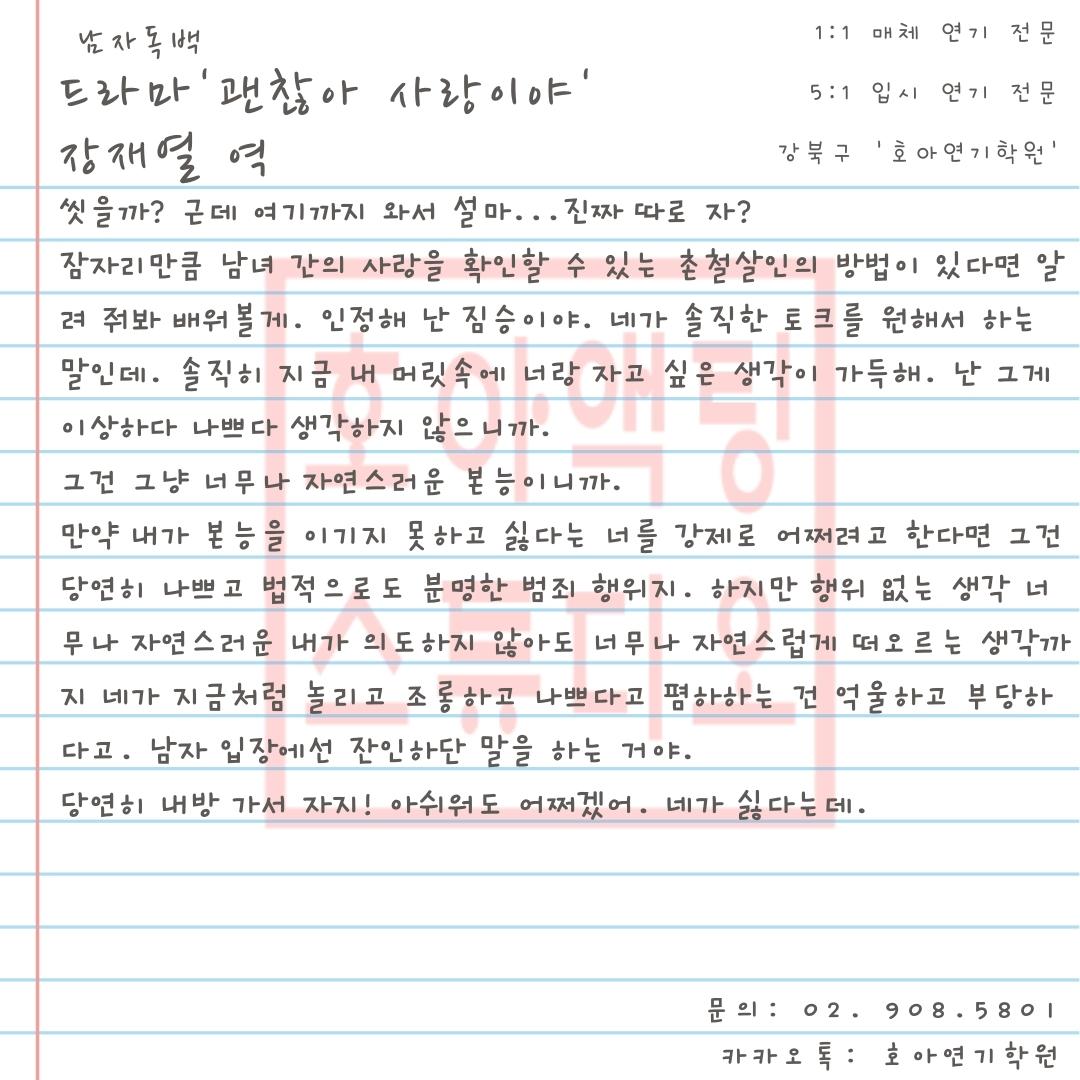 남자독백
드라마'괜찮아 사랑이야'
장재열 역
1:1 매체 연기 전문
5:1 입시 연기 전문
강북구 '호아연기학원'
씻을까? 근데 여기까지 와서 설마...진짜 따로 자?
잠자리만큼 남녀 간의 사랑을 확인할 수 있는 촌철살인의 방법이 있다면 알
려 줘봐 배워볼게. 인정해 난 짐승이야. 네가 솔직한 토크를 원해서 하는
말인데. 솔직히 지금 내 머릿속에 너랑 자고 싶은 생각이 가득해. 난 그게
이상하다 나쁘다 생각하지 않으니까.
그건 그냥 너무나 자연스러운 본능이니까.
만약 내가 본능을 이기지 못하고 싫다는 너를 강제로 어쩌려고 한다면 그건
당연히 나쁘고 법적으로도 분명한 범죄 행위지. 하지만 행위 없는 생각 너
무나 자연스러운 내가 의도하지 않아도 너무나 자연스럽게 떠오르는 생각까
지 네가 지금처럼 놀리고 조롱하고 나쁘다고 폄하하는 건 억울하고 부당하
다고. 남자 입장에선 잔인하단 말을 하는 거야.
당연히 내방 가서 자지! 아쉬워도 어쩌겠어. 네가 싫다는데.
호아액팅
스튜디오
문의: 02. 908.5801
카카오톡: 호아연기학원